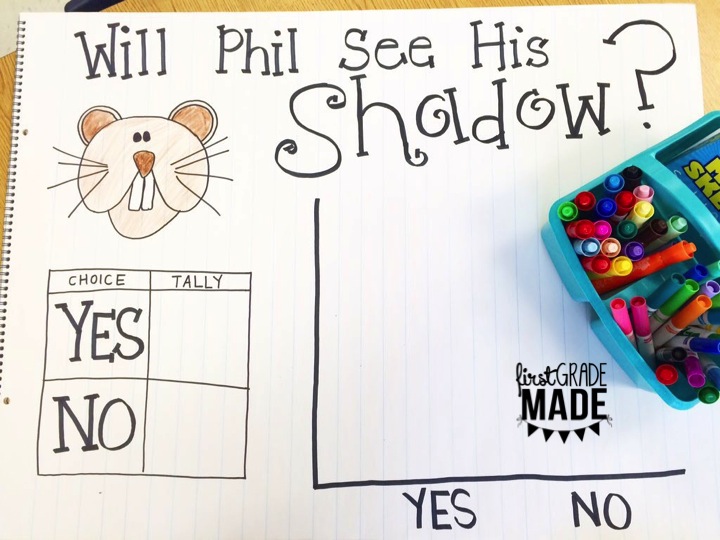 Will Phil See His
Shadow?
CHOICE TALLY
YES
NO
YES NO
firstGRADE
MADE